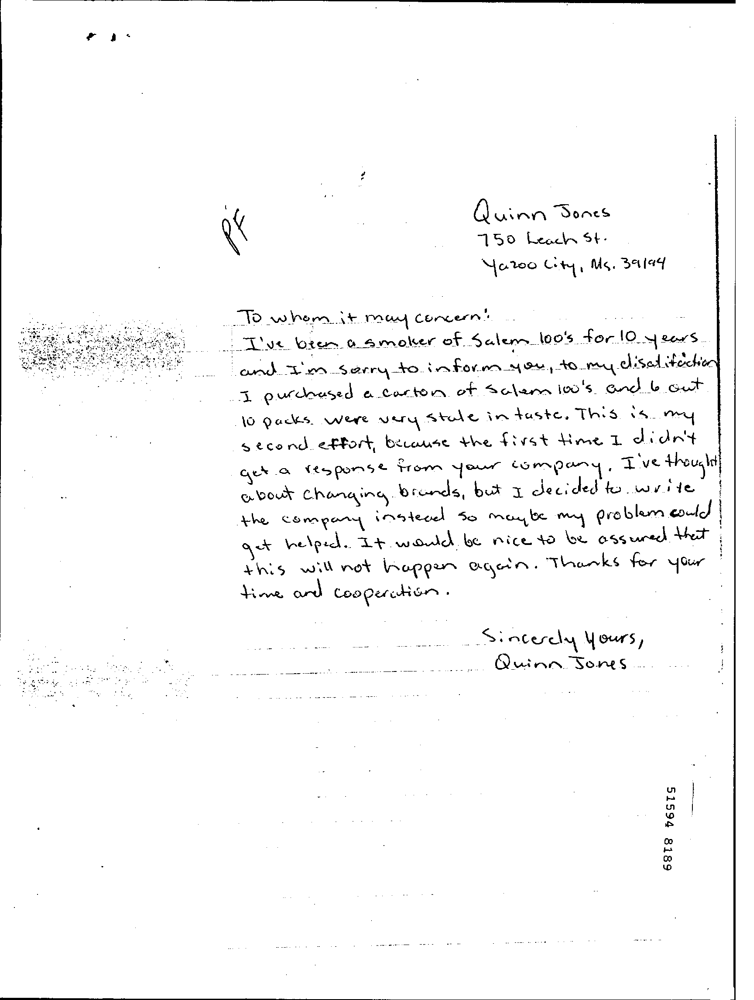 PF
Quinn Jones
750 Leach St.
Yazoo City, Ms. 39194
To whom it may concern:
I've been a smoker of Salem 100's for 10 years
and I'm sorry to inform you, to my disatifaction
I purchased a carton of Salem 100's and 6 out
10 packs were very stale in taste. This is my
second effort, because the first time I didn't
get a response from your company. I've thought
about changing brands, but I decided to write
the company instead so maybe my problem could
get helped. It would be nice to be assured that
this will not happen again. Thanks for your
time and cooperation.
Sincerely Yours,
Quinn Jones
51594 8189